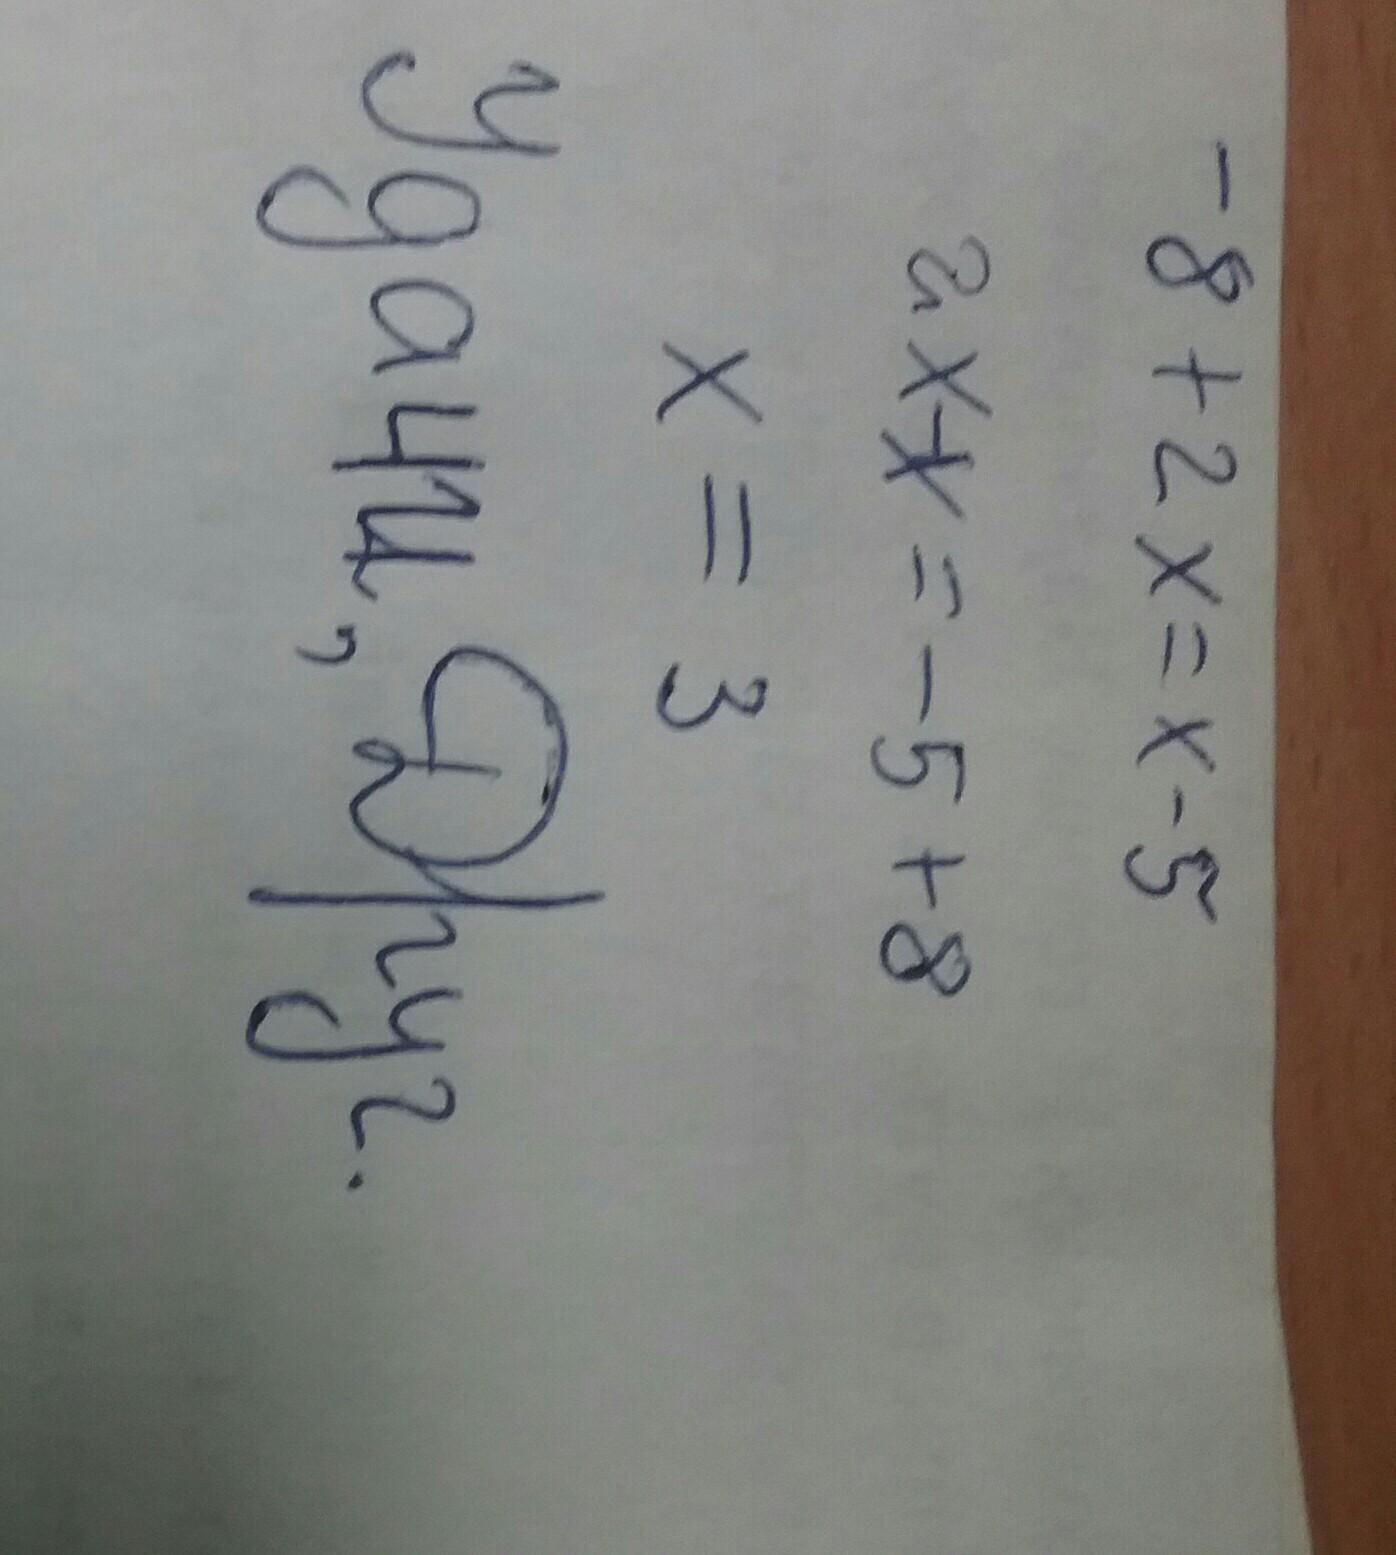 -8+2x=x-5
2x-x=-5+8
x=3
Удачи, Друг.